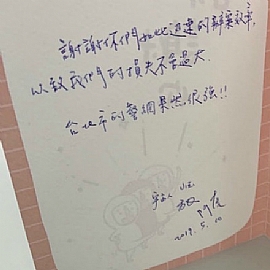 謝謝你們如此迅速的辦案效率,
以致我們的損失不會過大.
台北市的警網果然很強!!
2019. 5. 10